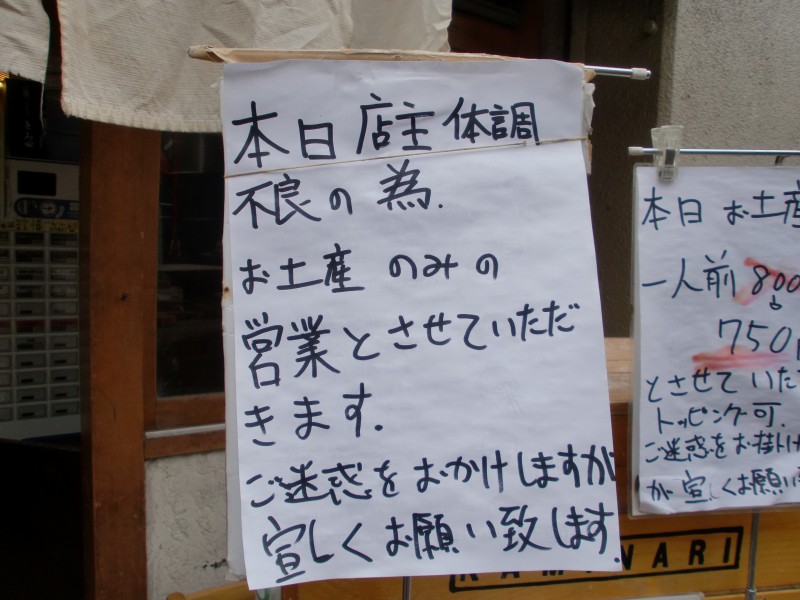 本日店主体調
不良の為.
お土産のみの
営業とさせていただ
きます.
ご迷惑をおかけしますが
宜しくお願い致します.
本日お土産
一人前 800
↓
750円
とさせていた
トッピング可.
ご迷惑をお掛け
が宜しくお願い
KAMINARI